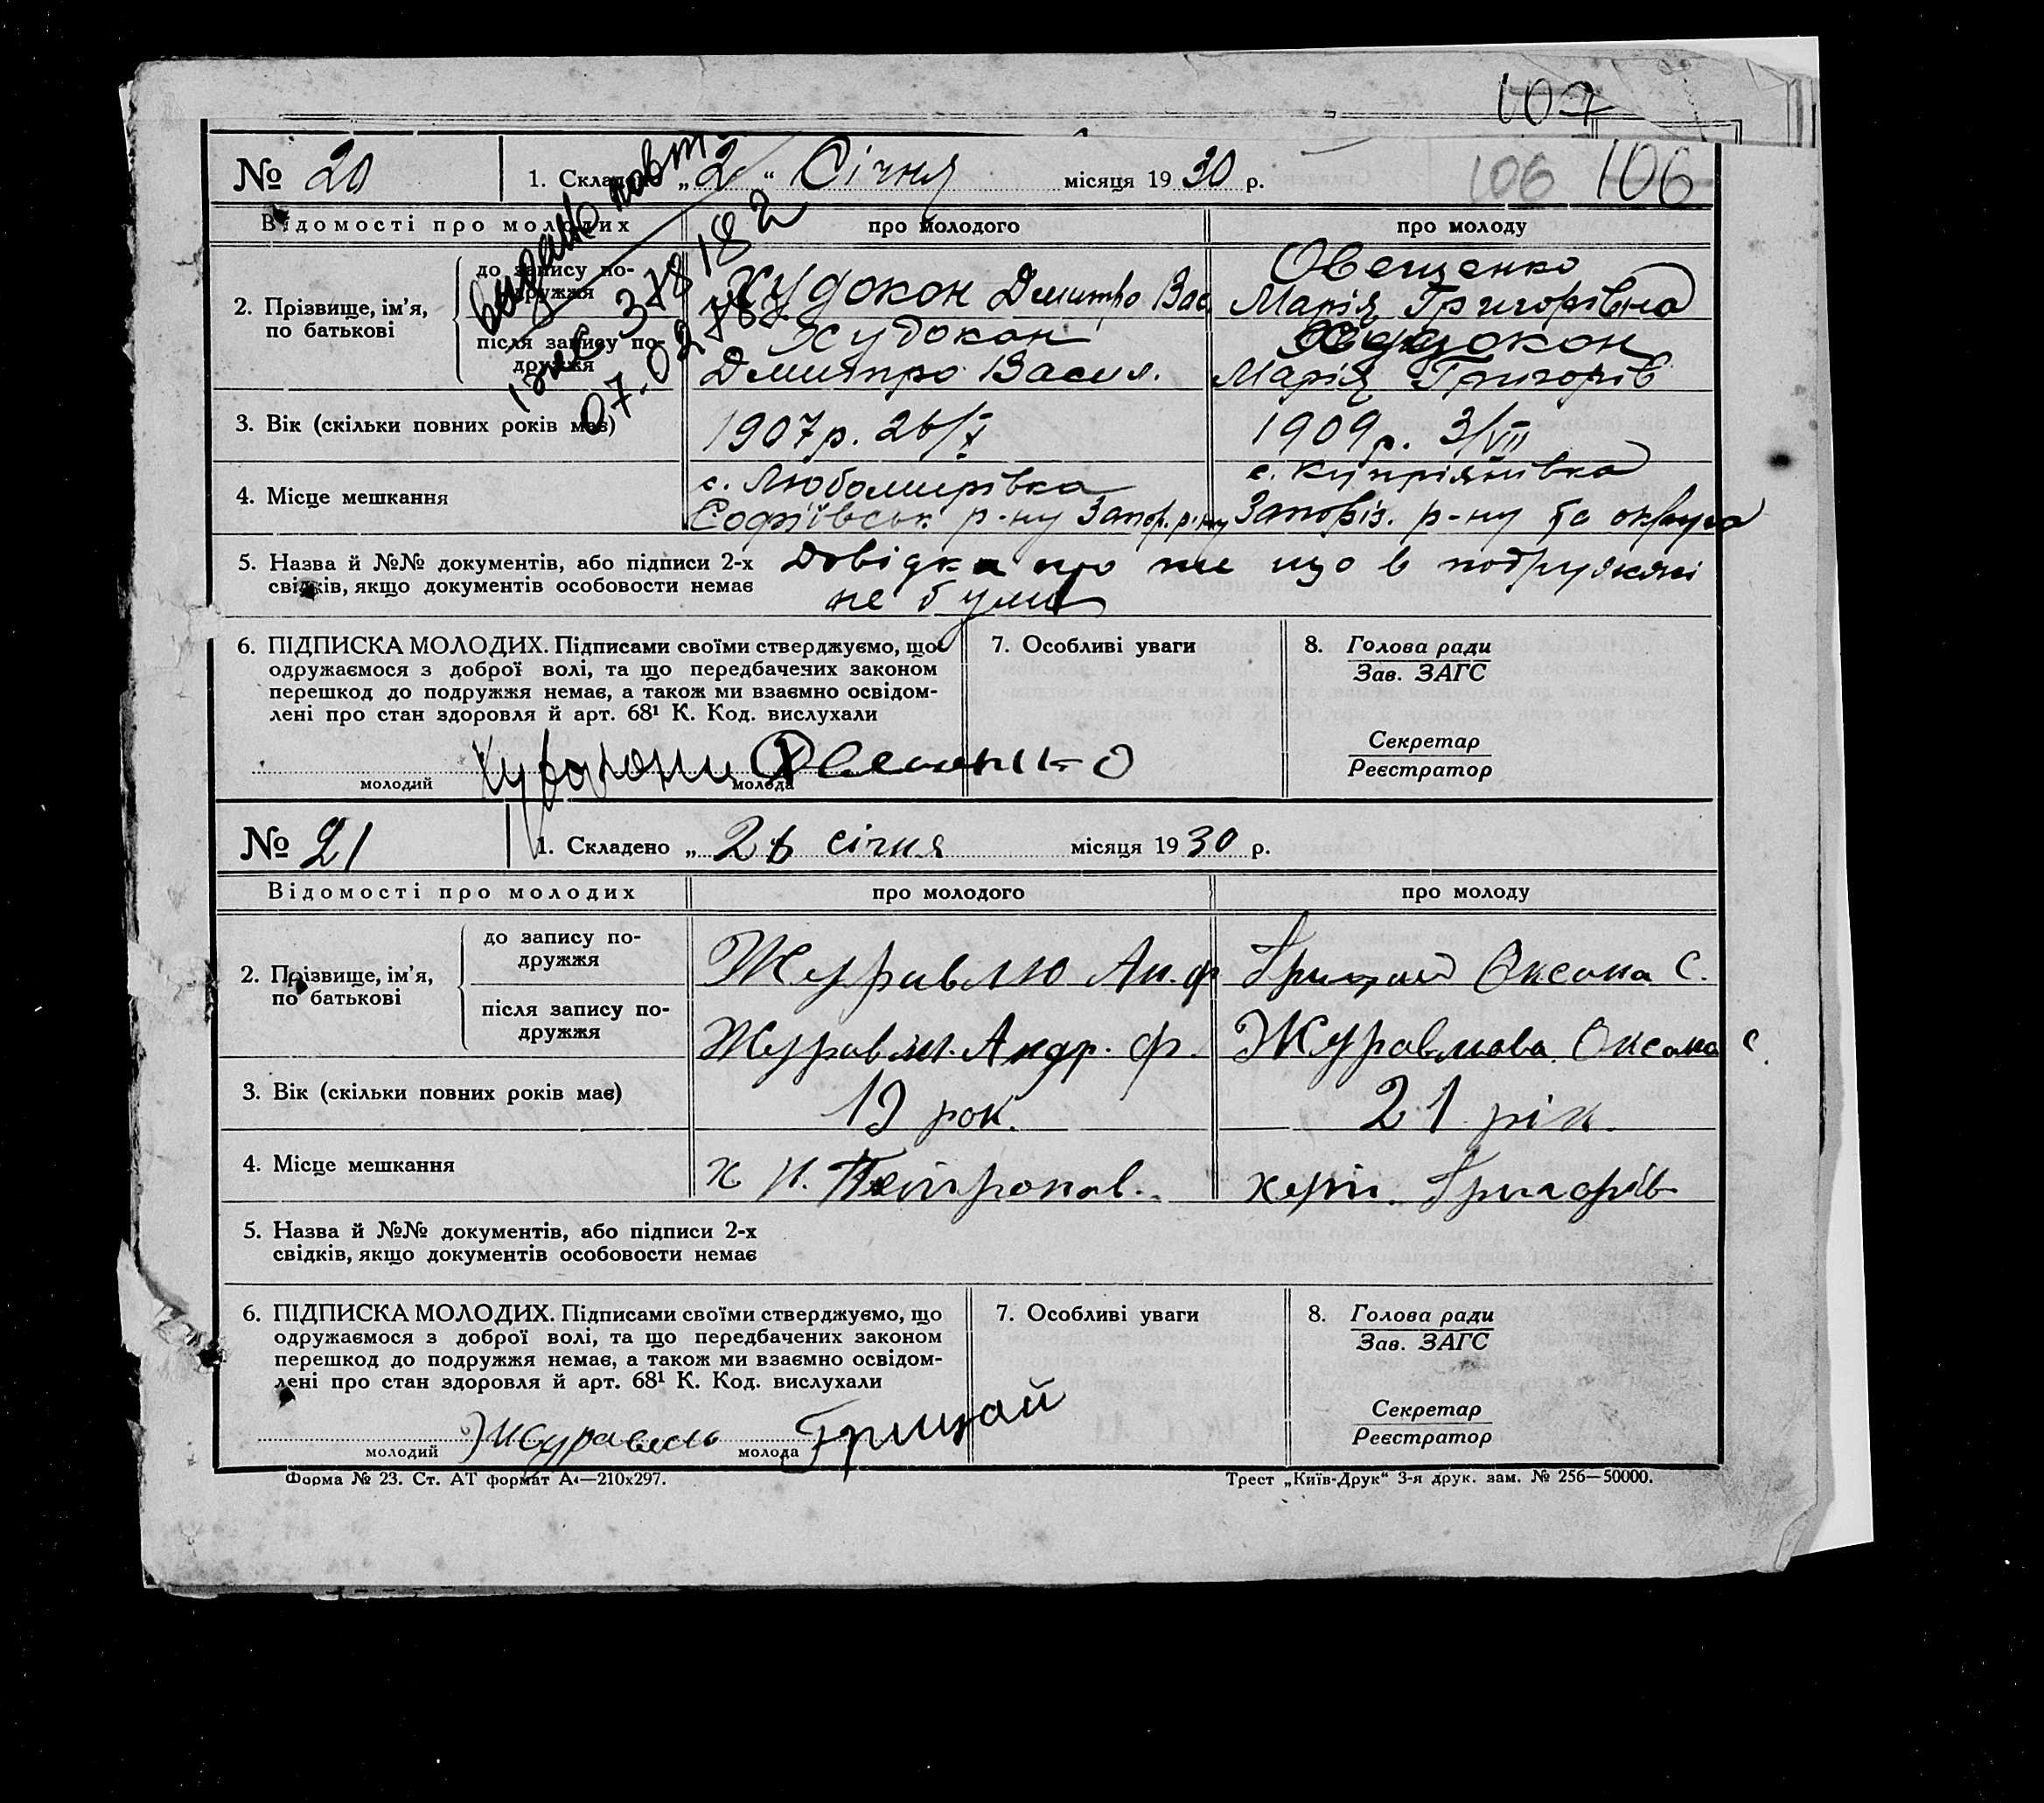 107
№ 20 1. Складено „2“ Січня місяця 1930 р. 106 106
Відомості про молодих про молодого про молоду
2. Прізвище, ім’я, по батькові
до запису подружжя
Худокон Дмитро Вас
Овещенко
Марія Григорівна
після запису подружжя
Худокон
Дмитро Васил.
Худокон
Марія Григорів
3. Вік (скільки повних років має) 1907 р. 26/X 1909 р. 3/VII
4. Місце мешкання
с. Любомирівка
Софіївськ р-ну Запор. р-ну
с. Купріянівка
Запоріз. р-ну та округа
видано повт
07.02
5. Назва й №№ документів, або підписи 2-х Довідка про те що в подружжі
свідків, якщо документів особовости немає не були
6. ПІДПИСКА МОЛОДИХ. Підписами своїми стверджуємо, що
одружаємося з доброї волі, та що передбачених законом
перешкод до подружжя немає, а також ми взаємно освідом-
лені про стан здоровля й арт. 68¹ К. Код. вислухали
молодий молода
7. Особливі уваги
8. Голова ради
Зав. ЗАГС
Секретар
Реєстратор
№ 21 1. Складено „ 26 січня місяця 1930 р.
Відомості про молодих про молодого про молоду
2. Прізвище, ім’я, по батькові
до запису подружжя
Журавлю Ан. ф
Грицай Оксана С.
після запису подружжя
Журавл. Андр. ф.
Журавльова Оксана С.
3. Вік (скільки повних років має) 19 рок. 21 рік.
4. Місце мешкання х Н. Петропав. хут. Григорів
5. Назва й №№ документів, або підписи 2-х
свідків, якщо документів особовости немає
6. ПІДПИСКА МОЛОДИХ. Підписами своїми стверджуємо, що
одружаємося з доброї волі, та що передбачених законом
перешкод до подружжя немає, а також ми взаємно освідом-
лені про стан здоровля й арт. 68¹ К. Код. вислухали
молодий Журавель молода Грицай
7. Особливі уваги
8. Голова ради
Зав. ЗАГС
Секретар
Реєстратор
Форма № 23. Ст. АТ формат А4—210х297. Трест „Київ-Друк“ 3-я друк. зам. № 256—50000.